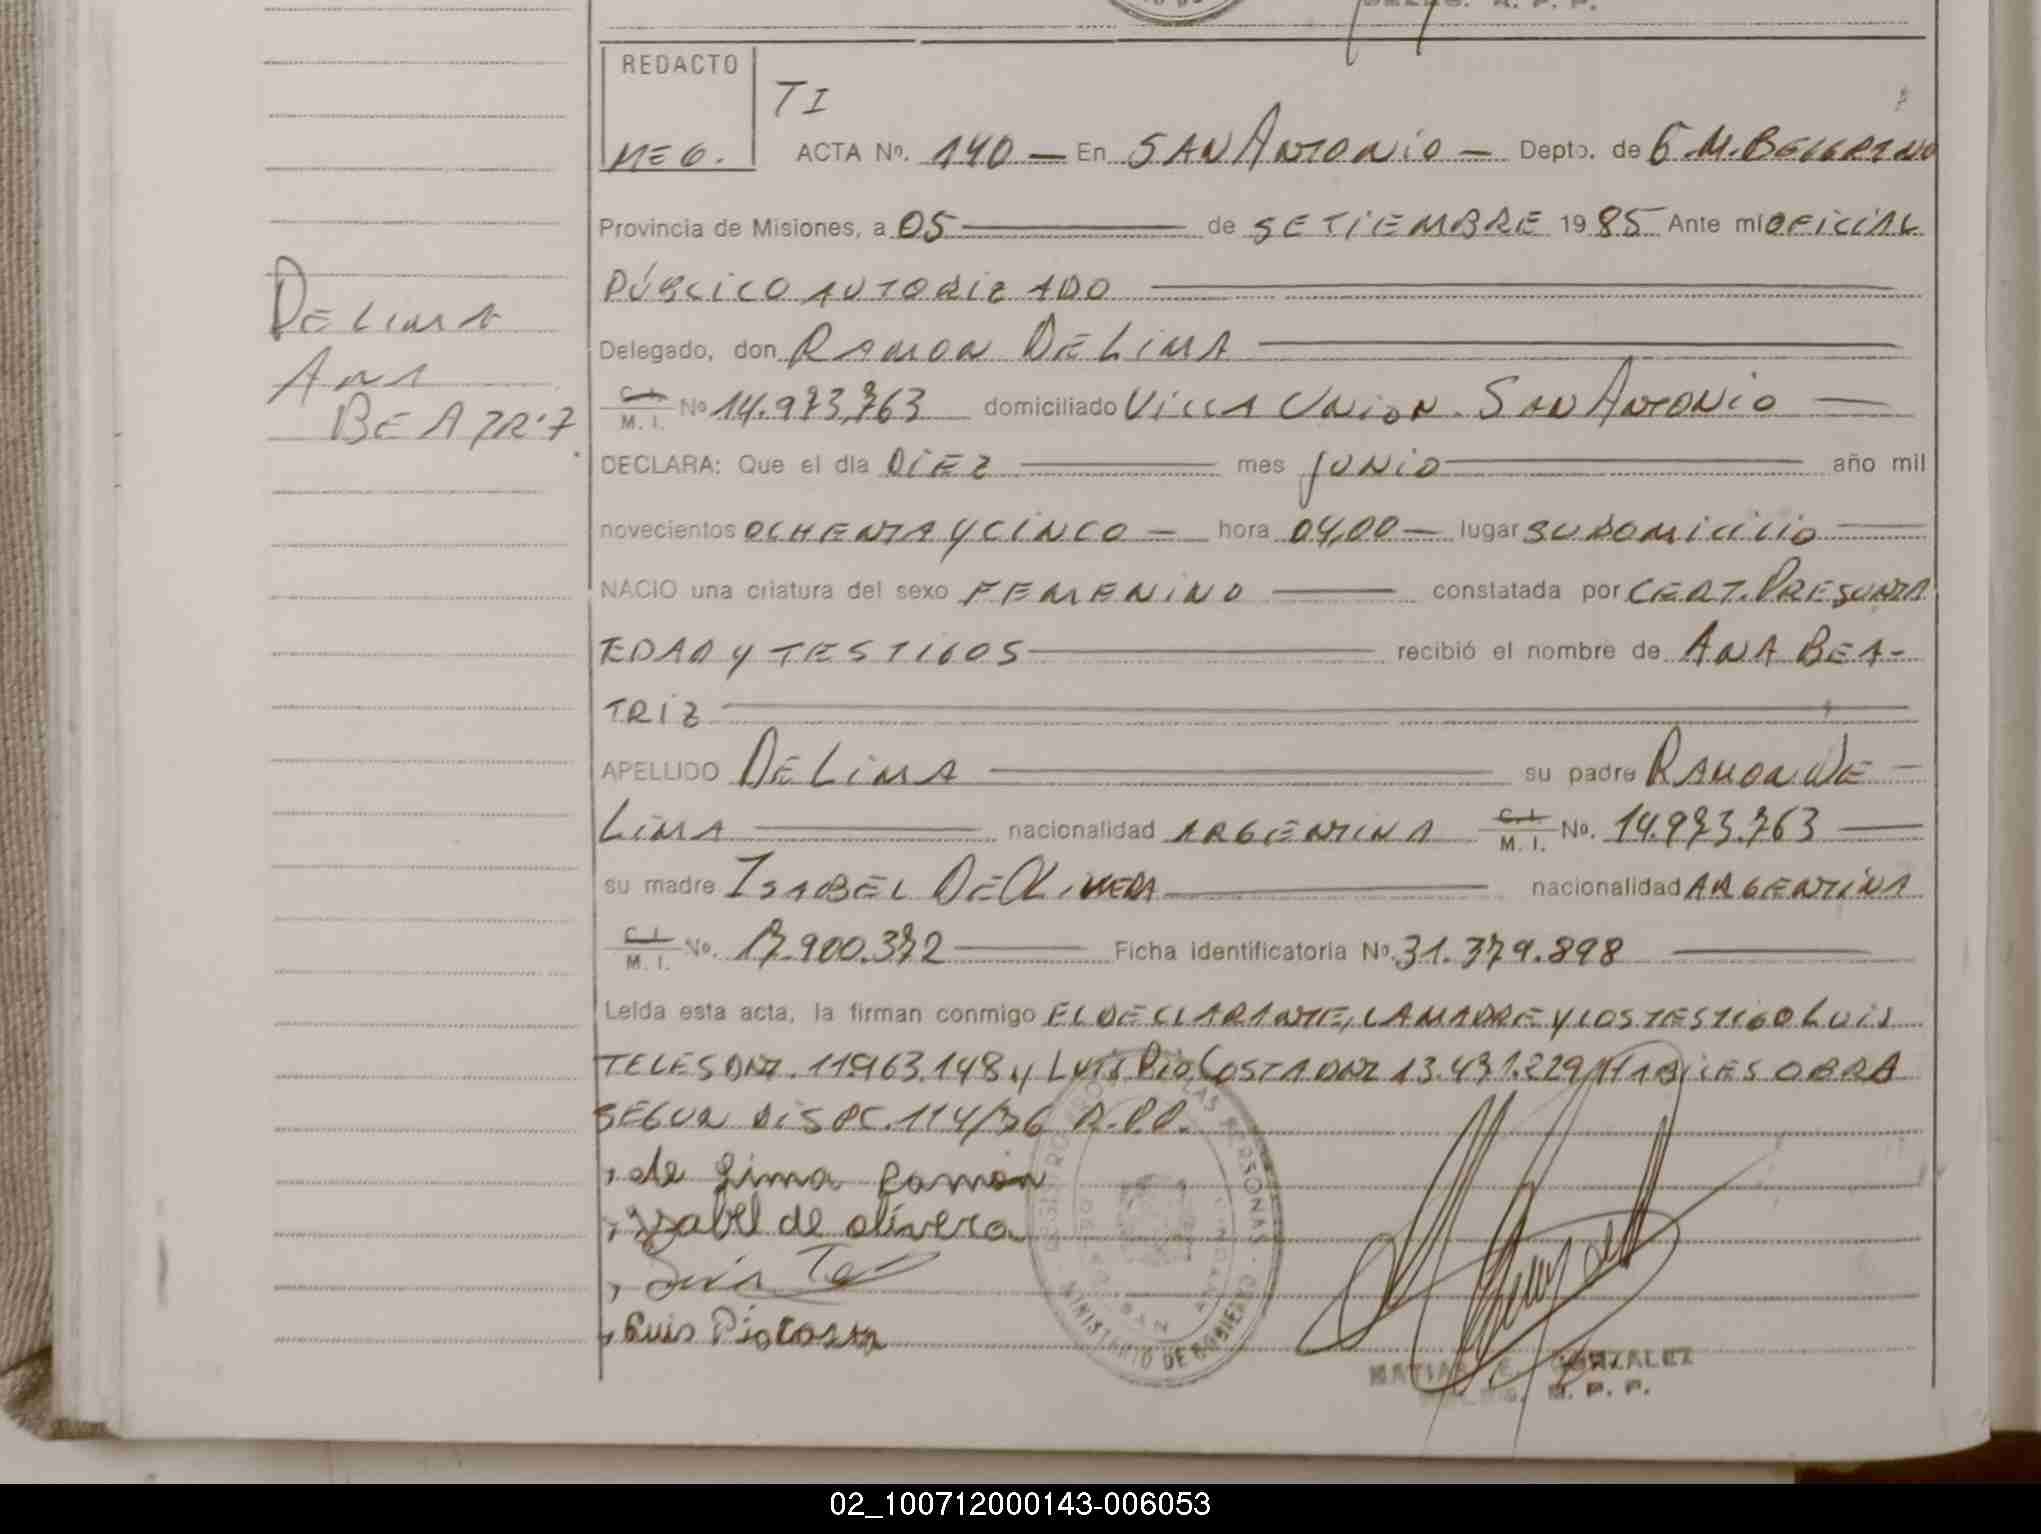 REDACTO
TI
MEG. ACTA Nº. 140 — En SAN ANTONIO — Depto. de G.M. BELGRANO
Provincia de Misiones, a 05 — de SETIEMBRE 1985 Ante mí OFICIAL
PÚBLICO AUTORIZADO
Delegado, don RAMON DE LIMA
DE LIMA
ANA
BEATRIZ
C. I. / M. I. Nº 14.973.763 domiciliado VILLA UNION. SAN ANTONIO —
DECLARA: Que el día DIEZ — mes JUNIO — año mil
novecientos OCHENTA Y CINCO — hora 04,00 — lugar SU DOMICILIO —
NACIO una criatura del sexo FEMENINO — constatada por CERT. PRESUNTA
EDAD Y TESTIGOS — recibió el nombre de ANA BEA-
TRIZ
APELLIDO DE LIMA — su padre RAMON DE —
LIMA — nacionalidad ARGENTINA C. I. / M. I. Nº. 14.973.763 —
su madre ISABEL DE OLIVERA — nacionalidad ARGENTINA
C. I. / M. I. Nº. 17.900.372 — Ficha identificatoria Nº. 31.379.898 —
Leída esta acta, la firman conmigo EL DECLARANTE, LA MADRE Y LOS TESTIGO LUIS
TELES DNI. 11.963.148 y LUIS PIO COSTA DNI 13.431.229 HABILES OBRA
SEGUN DISPC. 114/76 R.P.P.
, de Lima Ramón
, Ysabel de olivera
, Luis Tel
, Luis Pio Costa
REGISTRO PROV. DE LAS PERSONAS
MINISTERIO DE GOBIERNO
MATIAS E. GONZALEZ
R. P. P.
02_100712000143-006053